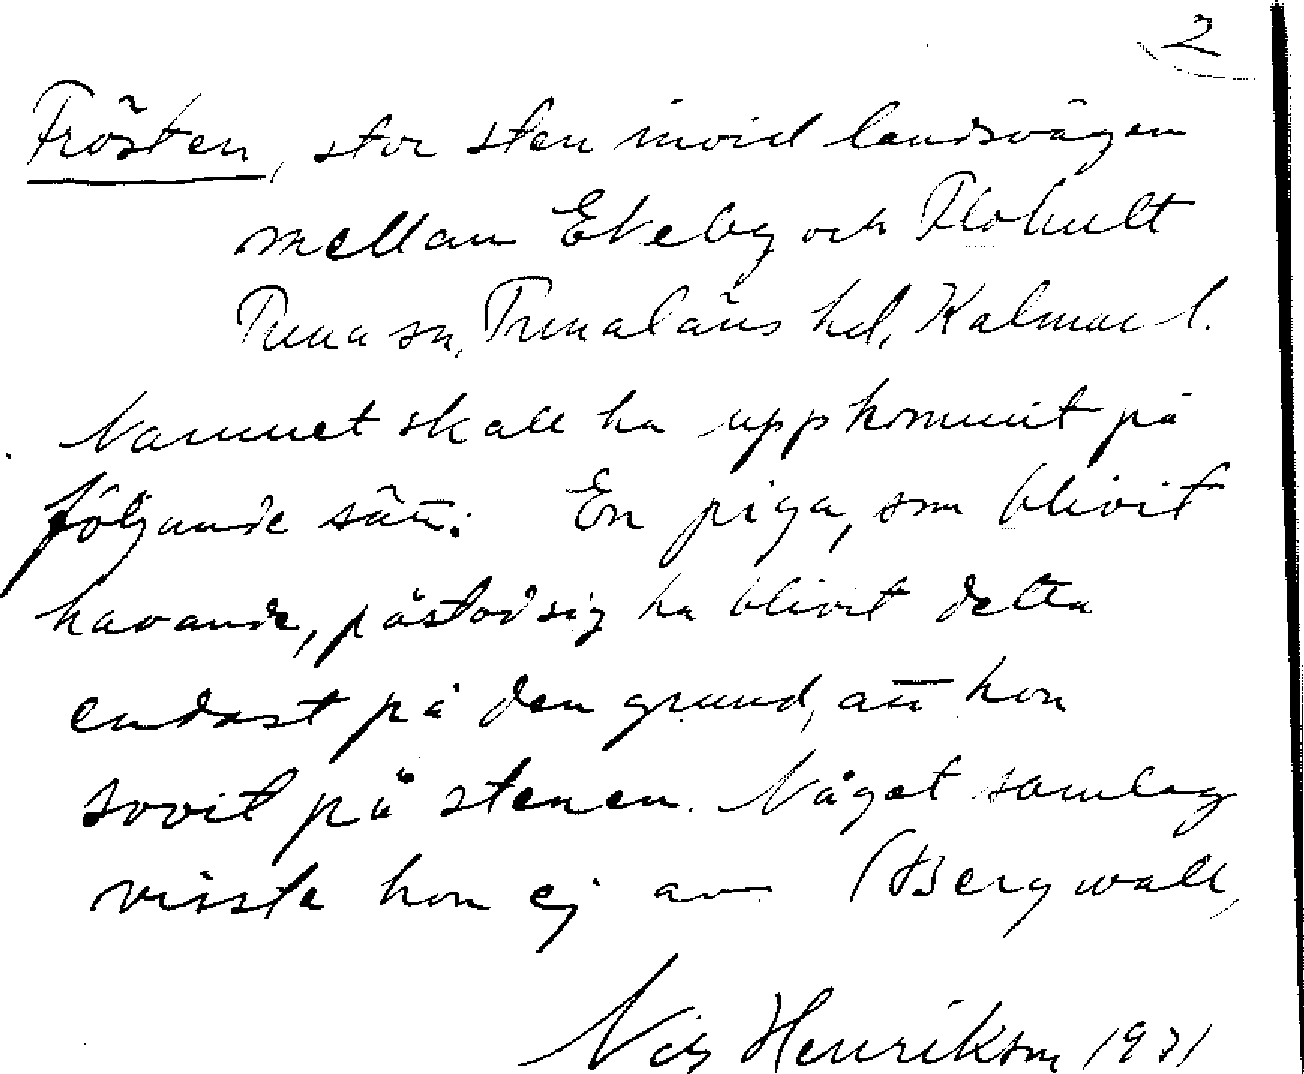 2
Frösten, stor sten invid landsvägen
mellan Ekeby och Flohult
Tuna sn, Tunaläns hd, Kalmar l.
Namnet skall ha uppkommit på
följande sätt: En piga, som blivit
havande, påstod sig ha blivit detta
endast på den grund, att hon
sovit på stenen. Något samlag
visste hon ej av (Bergwall,
Nils Henrikson 1931